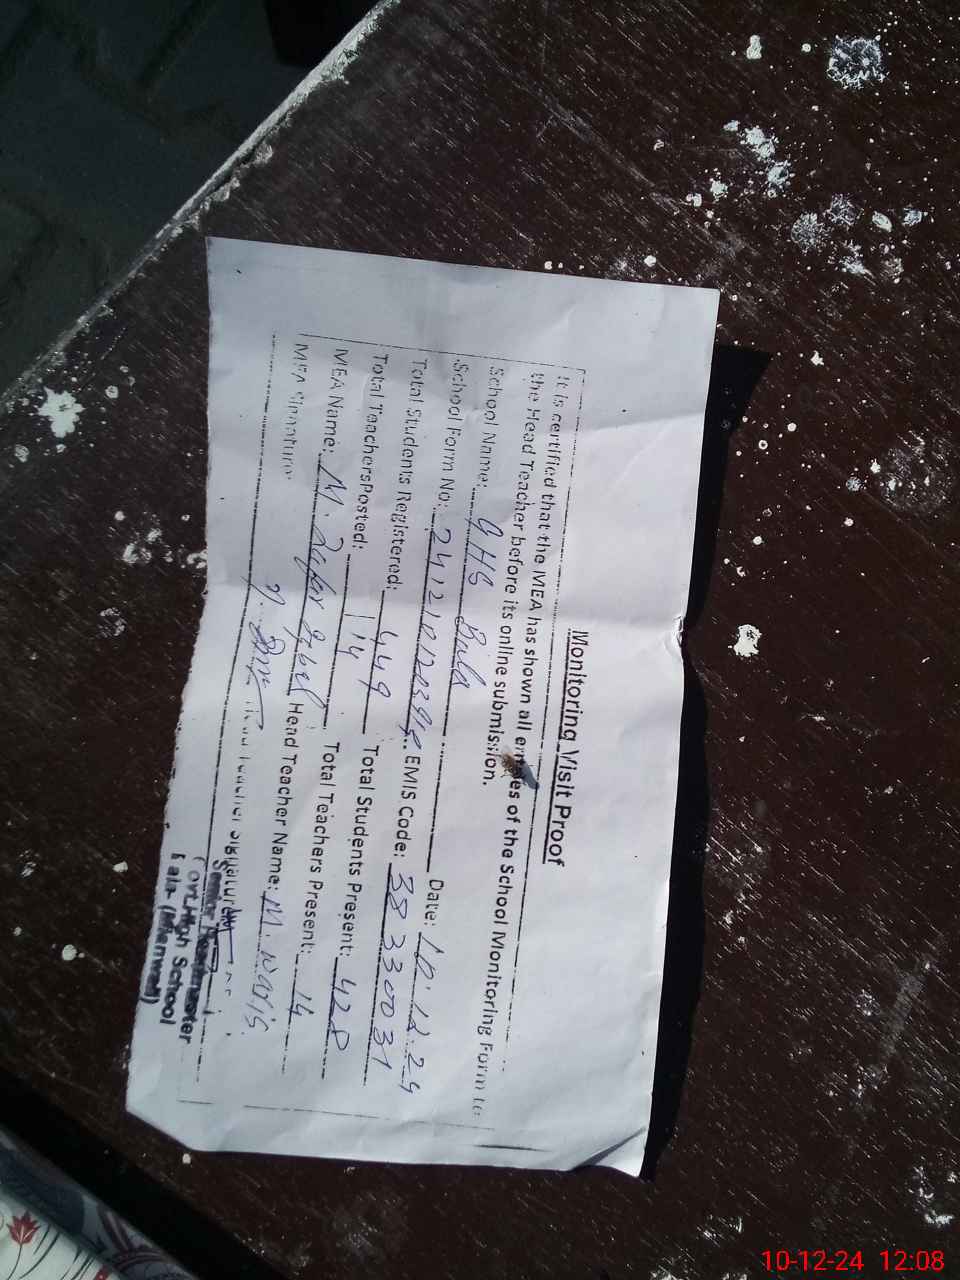 Monitoring Visit Proof
It is certified that the MEA has shown all entries of the School Monitoring Form to
the Head Teacher before its online submission.
School Name: GHS Bala Date: 10.12.24
School Form No: EMIS Code: 38330031
Total Students Registered: 449 Total Students Present: 428
Total TeachersPosted: 14 Total Teachers Present: 14
MEA Name: M. Iqbal Head Teacher Name: M. Waris
MEA Signature: Head Teacher Signature
Senior Headmaster
Govt. High School
Bala (Mianwali)
10-12-24 12:08